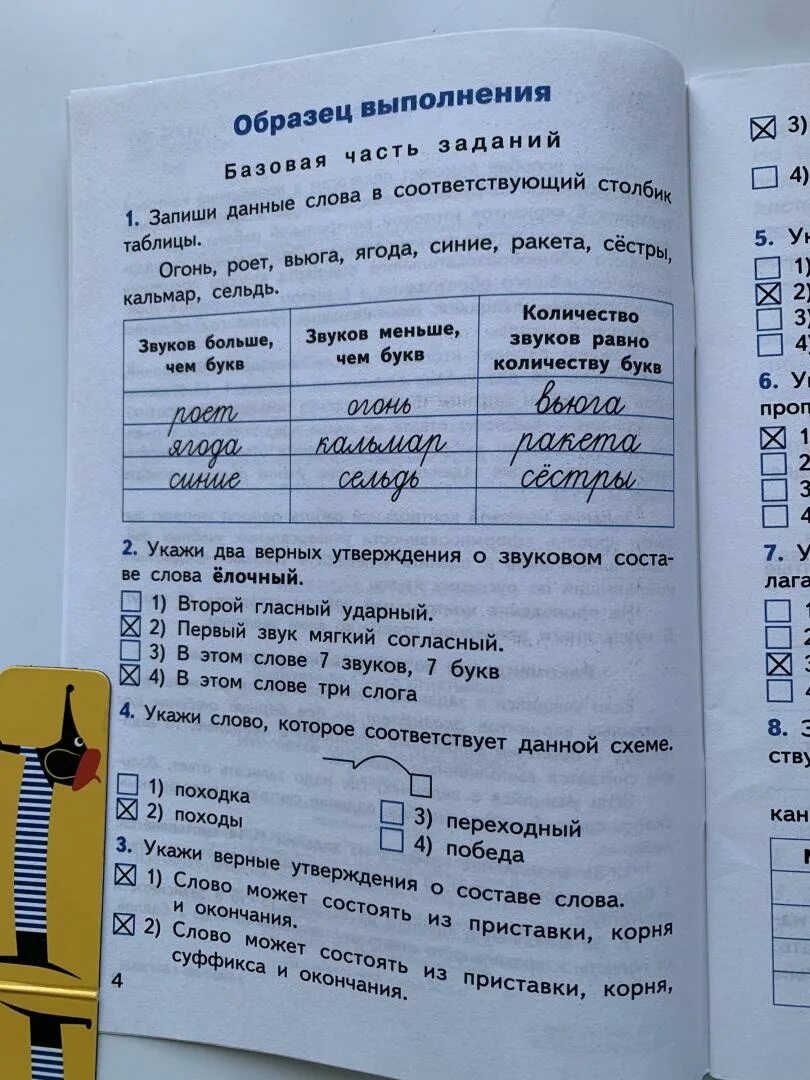 Образец выполнения
Базовая часть заданий
1. Запиши данные слова в соответствующий столбик
таблицы.
Огонь, роет, вьюга, ягода, синие, ракета, сёстры,
кальмар, сельдь.
Звуков больше, чем букв
Звуков меньше, чем букв
Количество звуков равно количеству букв
роет огонь вьюга
ягода кальмар ракета
синие сельдь сёстры
2. Укажи два верных утверждения о звуковом соста-
ве слова ёлочный.
1) Второй гласный ударный.
2) Первый звук мягкий согласный.
3) В этом слове 7 звуков, 7 букв
4) В этом слове три слога
4. Укажи слово, которое соответствует данной схеме.
1) походка
2) походы
3) переходный
4) победа
3. Укажи верные утверждения о составе слова.
1) Слово может состоять из приставки, корня
и окончания.
2) Слово может состоять из приставки, корня,
суффикса и окончания.
4
3)
4)
5.
1)
2)
3)
4)
6.
проп
1
2
3
4
7. У
лага
1
2
3
4
8. З
ству
кан